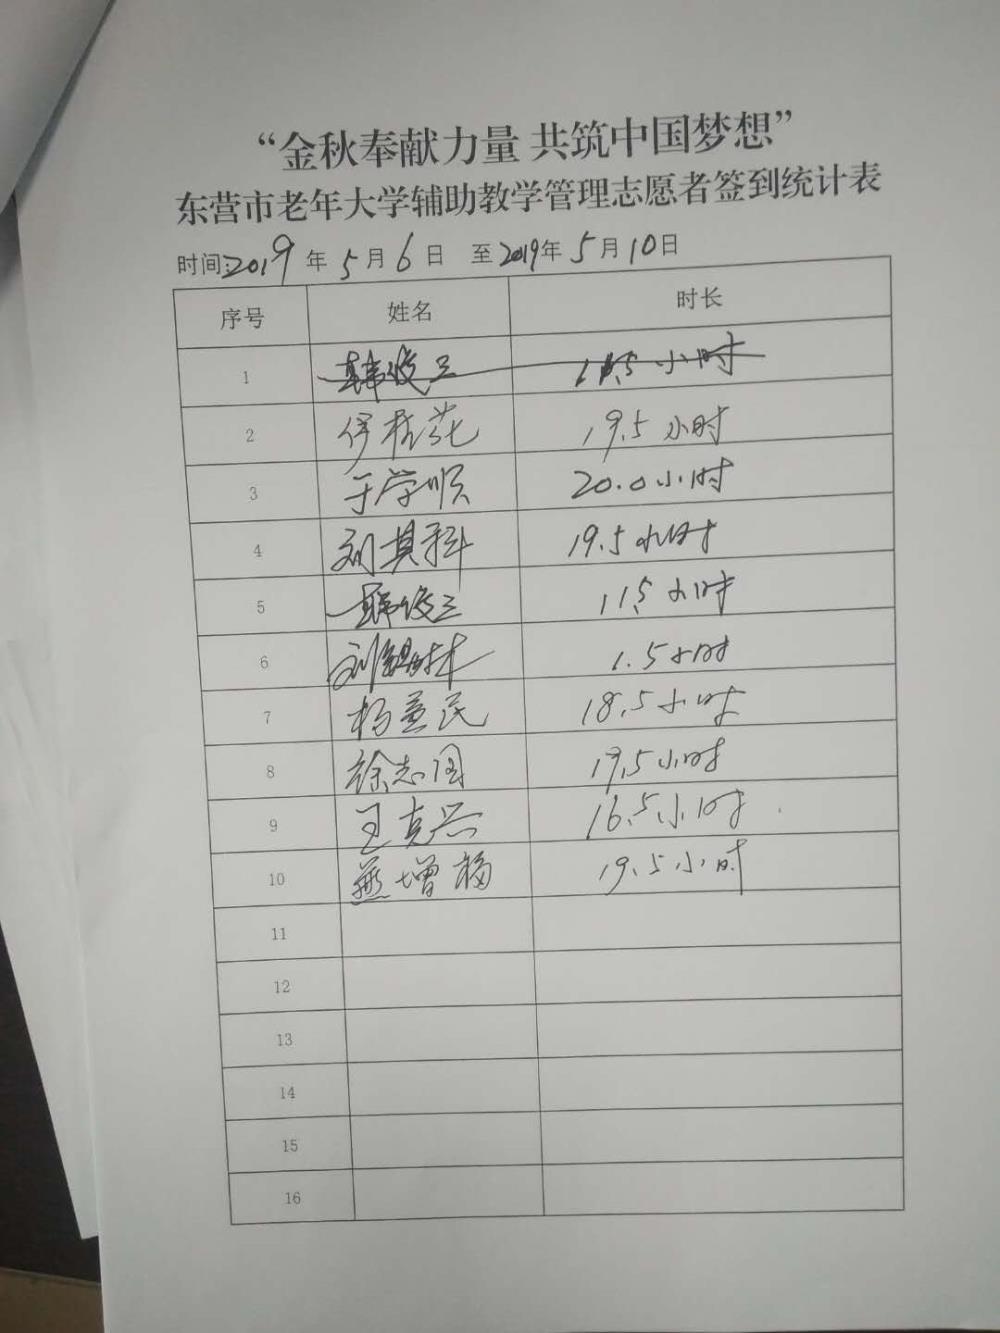 “金秋奉献力量 共筑中国梦想”
东营市老年大学辅助教学管理志愿者签到统计表
时间:2019年5月6日 至2019年5月10日
序号 姓名 时长
1 韩俊三 小时
2 伊桂花 19.5小时
3 于学顺 20.0小时
4 刘其科 19.5小时
5 韩俊三 11.5小时
6 刘 林 1.5小时
7 杨益民 18.5小时
8 徐志国 19.5小时
9 王克兴 16.5小时
10 燕增福 19.5小时
11
12
13
14
15
16